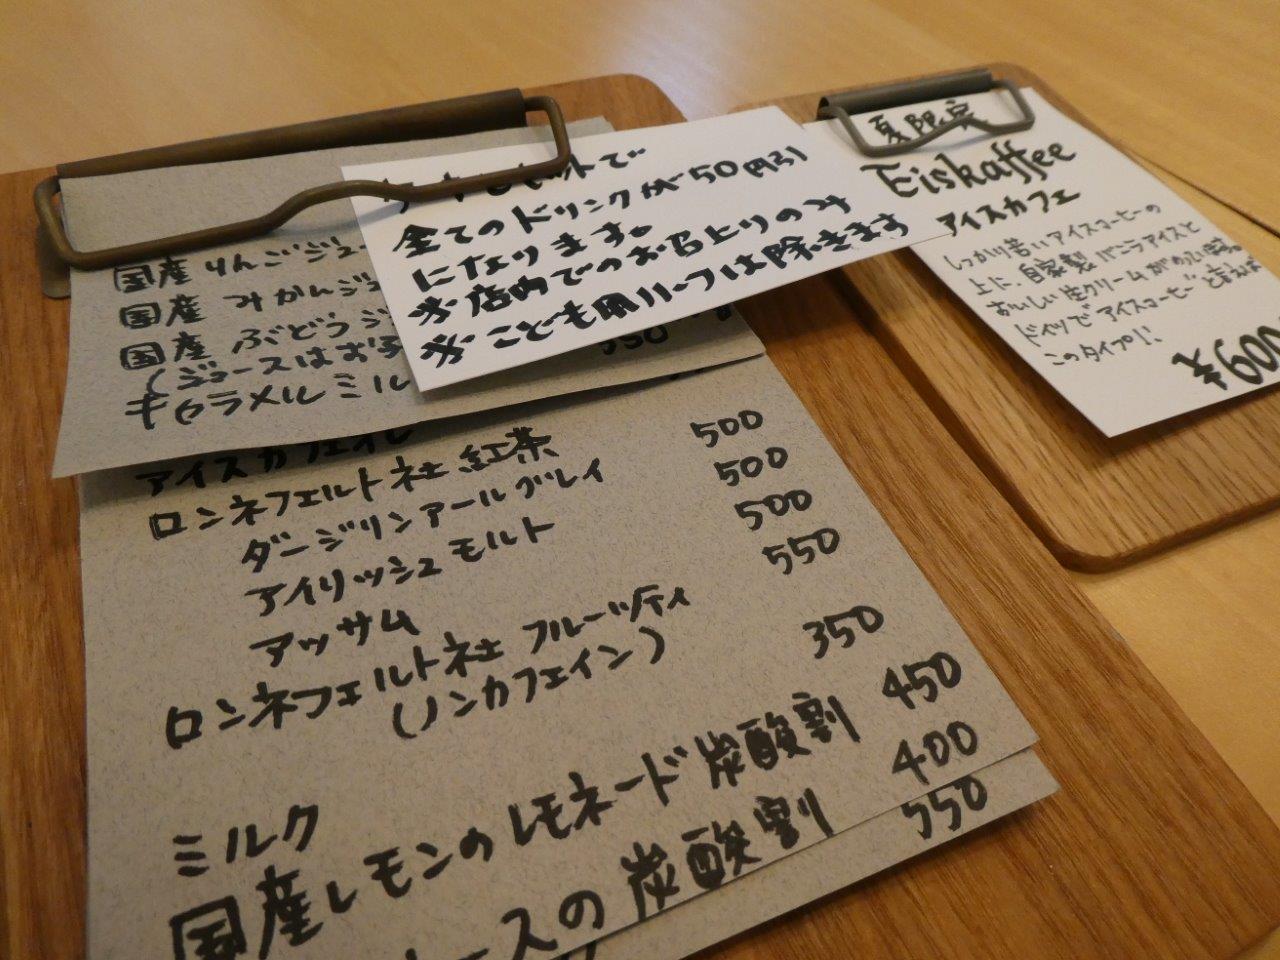 国産 りんごジュー
国産 みかんジュ
国産 ぶどうジ
(ジュースはお子
キャラメルミル
350
アイスカフェオレ
ロンネフェルト社 紅茶
ダージリンアールグレイ 500
アイリッシュモルト 500
アッサム 500
ロンネフェルト社 フルーツティ 550
(ノンカフェイン)
ミルク 350
国産レモンのレモネード炭酸割 450
400
ースの炭酸割 550
セットで
全てのドリンクが50円引
になります。
※店内でのお召上りのみ
※こども用ハーフは除きます
夏限定
Eiskaffee
アイスカフェ
しっかり苦いアイスコーヒーの
上に、自家製バニラアイスと
おいしい生クリームが
ドイツでアイスコーヒーと言えば
このタイプ!!
¥600